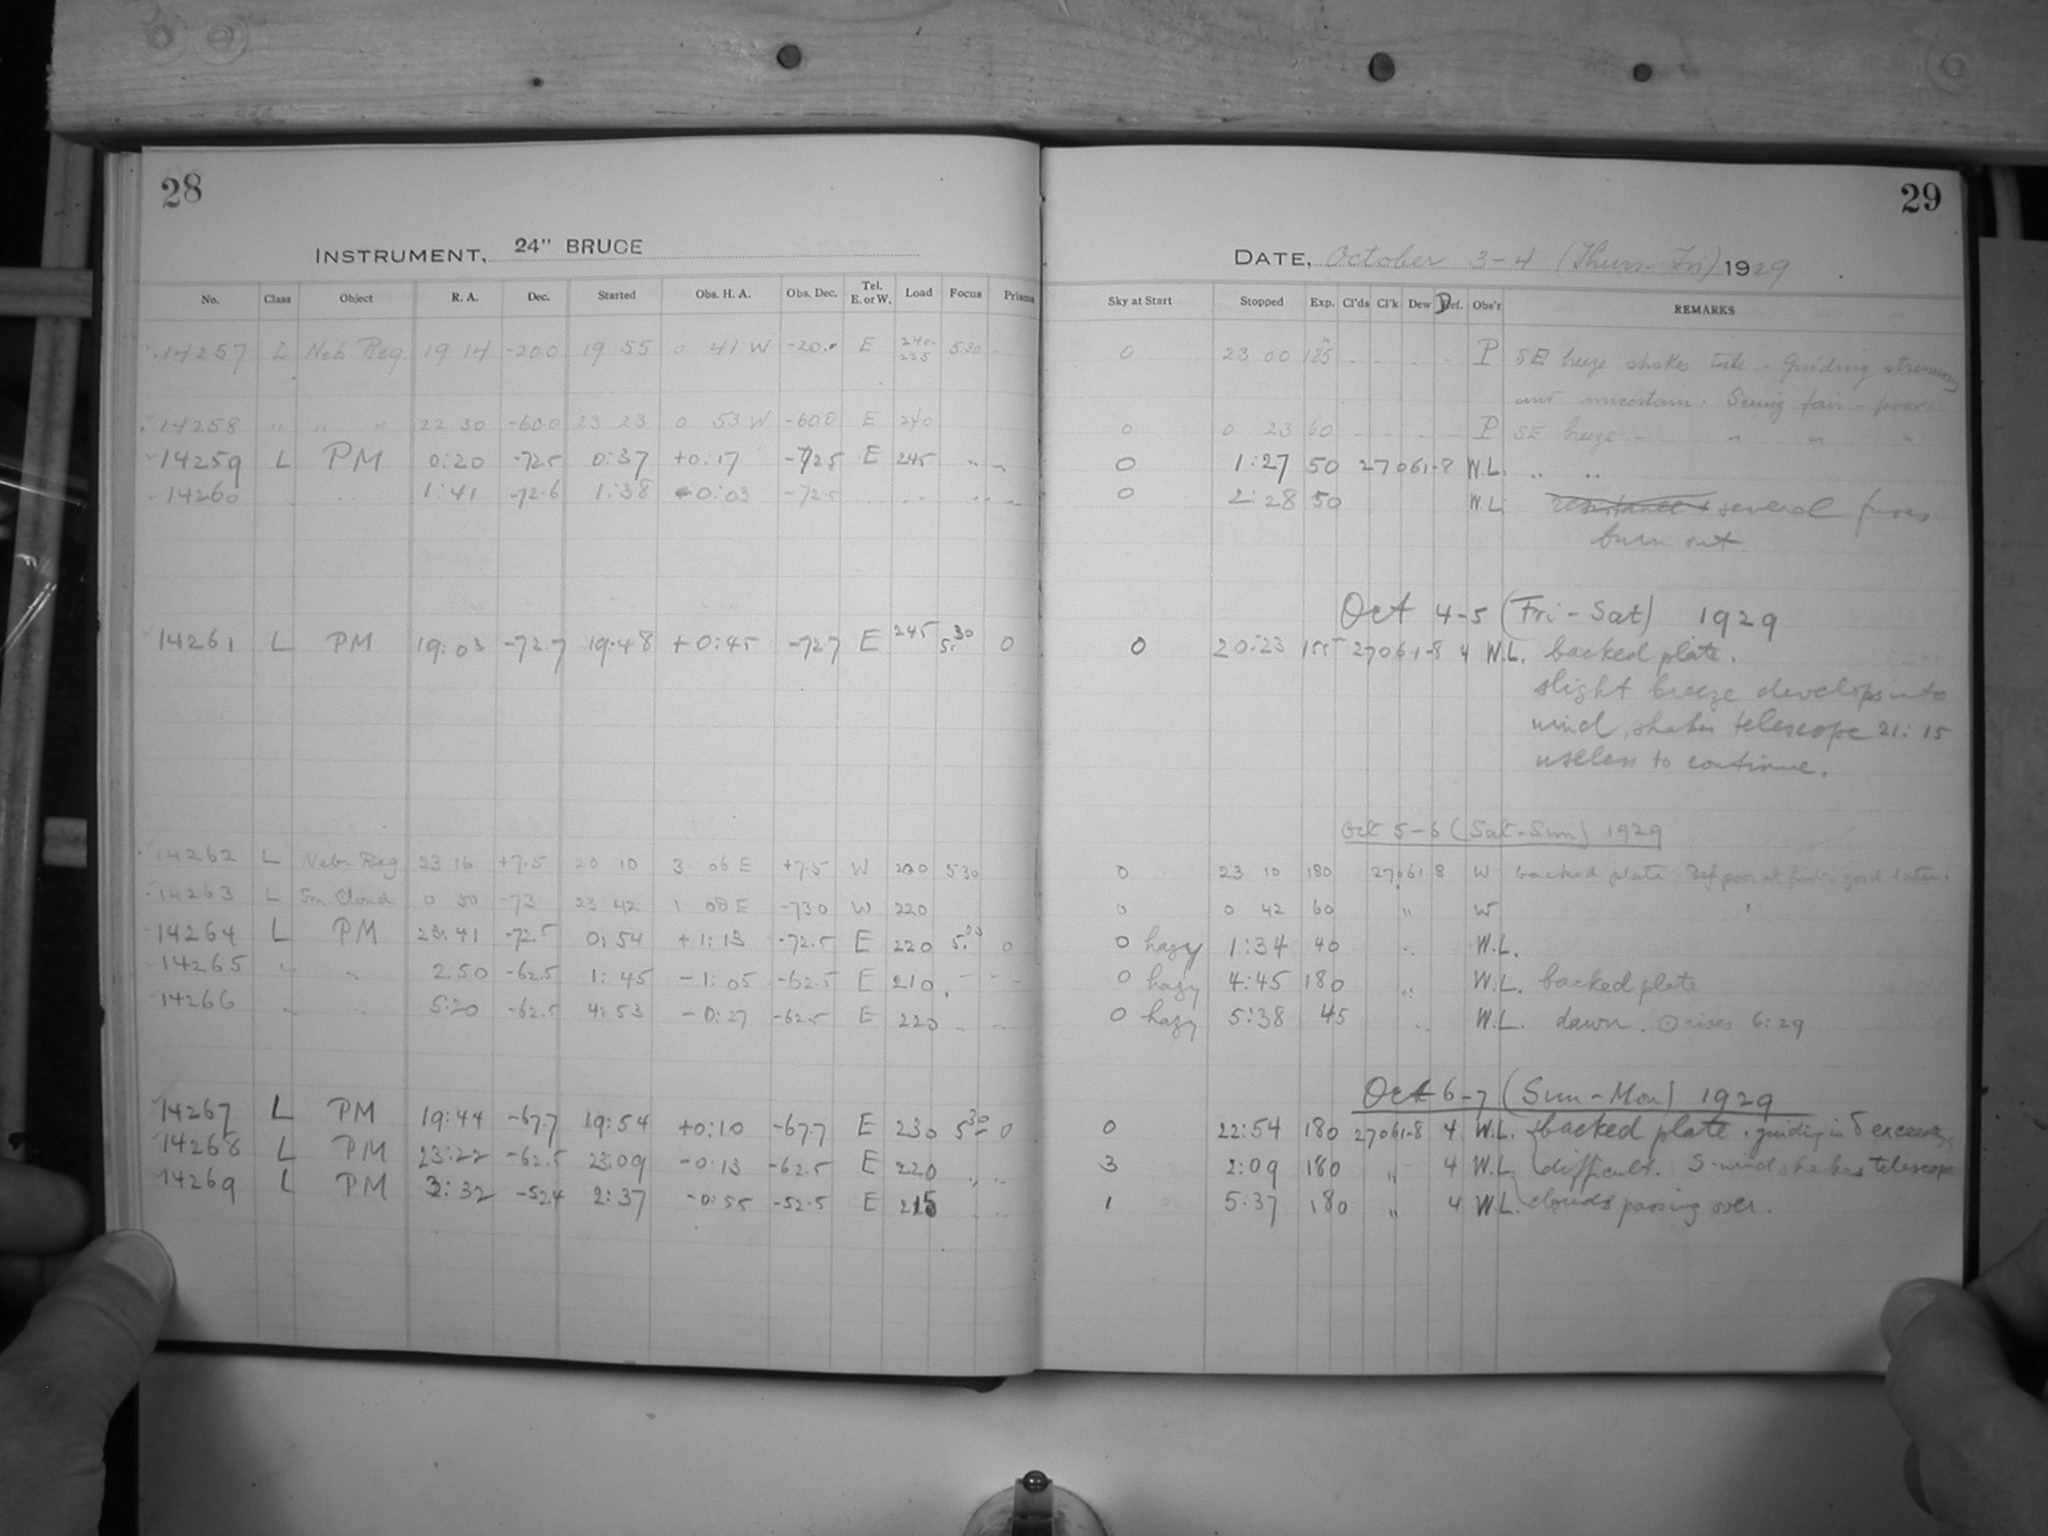 28
INSTRUMENT, 24" BRUCE
No. Class Object R. A. Dec. Started Obs. H. A. Obs. Dec. Tel. E. or W. Load Focus Prism
14257 L Neb. Reg. 19 14 -20.0 19 55 0 41 W -20. E 240- 225 530 -
14258 " " " 22 30 -60.0 23 23 0 53 W -60.0 E 240
14259 L PM 0:20 -72.5 0:37 +0:17 -72.5 E 245 " "
14260 " " 1:41 -72.6 1:38 0:03 -72.5
14261 L PM 19:03 -72.7 19:48 +0:45 -72.7 E 245 5.30 0
14262 L Neb Reg 23 16 +7.5 20 10 3 06 E +7.5 W 200 530
14263 L Sm Cloud 0 50 -73 23 42 1 08 E -73.0 W 220
14264 L PM 23:41 -72.5 0:54 +1:13 -72.5 E 220 0
14265 " " 2:50 -62.5 1:45 -1:05 -62.5 E 210
14266 " " 5:20 -62.5 4:53 -0:27 -62.5 E 220
14267 L PM 19:44 -67.7 19:54 +0:10 -67.7 E 230 5.30 0
14268 L PM 23:22 -62.5 23:09 -0:13 -62.5 E 220 " "
14269 L PM 3:32 -52.4 2:37 -0:55 -52.5 E 215 " "
29
DATE, October 3-4 (Thurs-Fri) 1929
Sky at Start Stopped Exp. Cl'ds Cl'k Dew Def. Obs'r REMARKS
0 23 00 185 - - - - P SE breeze shakes tube - Guiding strenuous
and uncertain. Seeing fair - poor.
0 0 23 60 - - - - P SE breeze - " " "
0 1:27 50 27061-8 W.L. " "
0 2:28 50 W.L. resistance + several fuses
burn out
Oct 4-5 (Fri-Sat) 1929
0 20:23 27061-8 4 W.L. backed plate.
slight breeze develops into
wind, shakes telescope 21:15
useless to continue.
Oct 5-6 (Sat-Sun) 1929
0 23 10 180 27061-8 W backed plate Def poor at first - good later.
0 0 42 60 " W
0 hazy 1:34 40 " W.L.
0 hazy 4:45 180 " W.L. backed plate
0 hazy 5:38 45 " W.L. dawn. ⊙ rises 6:29
Oct 6-7 (Sun-Mon) 1929
0 22:54 180 27061-8 4 W.L. backed plate. guiding in δ
3 2:09 180 " 4 W.L. difficult. S-wind shakes telescope
1 5:37 180 " 4 W.L. clouds passing over.